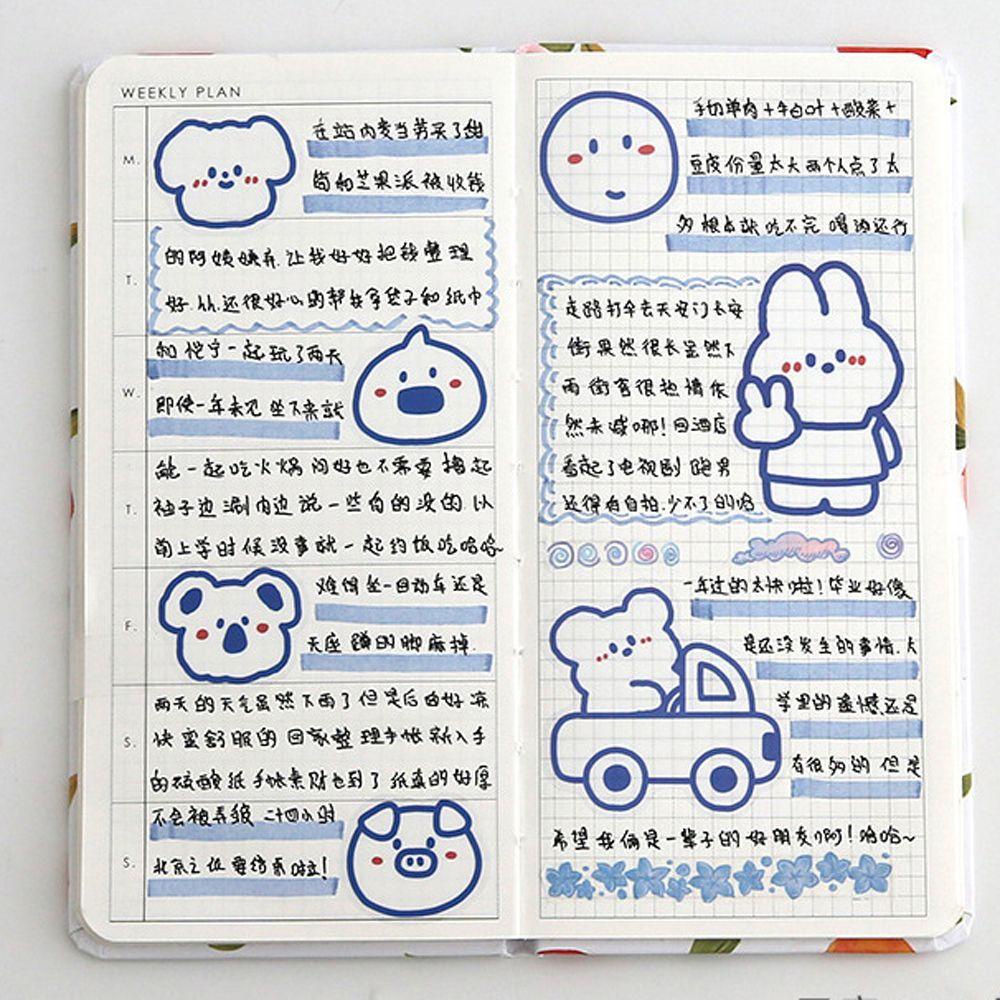 WEEKLY PLAN
M.
在站内麦当劳买了甜
筒和芝果派被收钱
T.
的阿姨嫌弃.让我好好把钱整理
好.从.还很好心的帮我拿袋子和纸巾
W.
和悦宁一起玩了两天
即使一年未见 坐下来就
能一起吃火锅 问好也不需要 撸起
T.
袖子边涮肉边说一些有的没的.以
前上学时候没事就一起约饭吃哈哈~
F.
难得坐一回动车还是
天座 蹲的脚麻掉.
两天的天气虽然下雨了但是后面好凉
S.
快蛮舒服的 回家整理手帐新入手
的硫酸纸 手帐素贴也到了 纸真的好厚
不会被弄皱 二十四小时
S.
北京之旅要结束啦!
手切羊肉+牛百叶+酸菜+
豆皮份量太大两个人点了太
多根本就吃不完 喝汤还行
走路打伞去天安门长安
街果然很长虽然下
雨 街客很热情依
然未减哪!回酒店
看起了电视剧 跑男
还得有自拍.少不了的哈
一年过的太快啦!毕业好像
是还没发生的事情.大
学里的遗憾还是
有很多的 但是
希望我俩是一辈子的好朋友啊!哈哈~